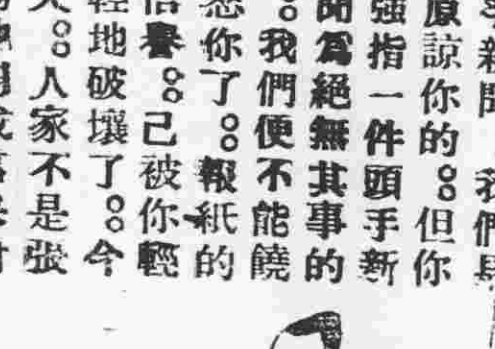 新聞 我們是
原諒你的。但你
強指一件頭手新
聞爲絕無其事的
。我們便不能饒
恕你了。報紙的
信譽。己被你輕
輕地破壞了。今
天。人家不是張